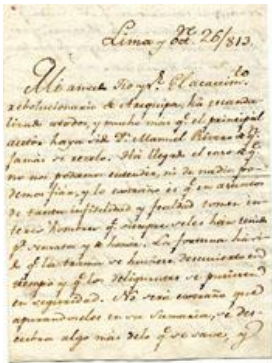 Lima y Oct. 26/813
Mi amado Tio y Sr. El acaecim.to
rebolucionario de Arequipa, ha escanda
lizado á todos, y mucho mas q.e el principal
actor haya sido D.n Manuel Rivero
jamas se receló. Ha llegado el caso de q.e
no nos podamos entender, ni de nadie po-
demos fiar, y lo extraño es q.e en asuntos
de tanta infidelidad y fealdad tomen in-
teres hombres q.e siempre se les han tenido
p.r sensatos y de honor. La fortuna ha si-
do q.e la trama se huviese descubierto en
tiempo y q.e los delinquentes se pusiesen
en seguridad. No será extraño que
apurandoselos en su Sumaria, se des-
cubra algo más delo q.e se save, y